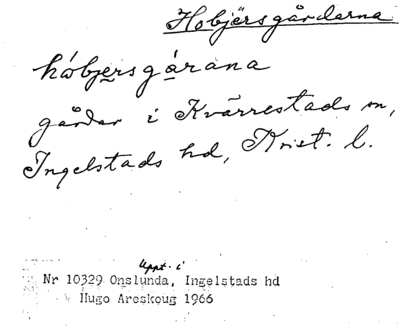 Hobjersgårdarna
hobjersgárana
gårdar i Kvärrestads sn,
Ingelstads hd, Krist. l.
Uppt. i
Nr 10329 Onslunda, Ingelstads hd
Hugo Areskoug 1966